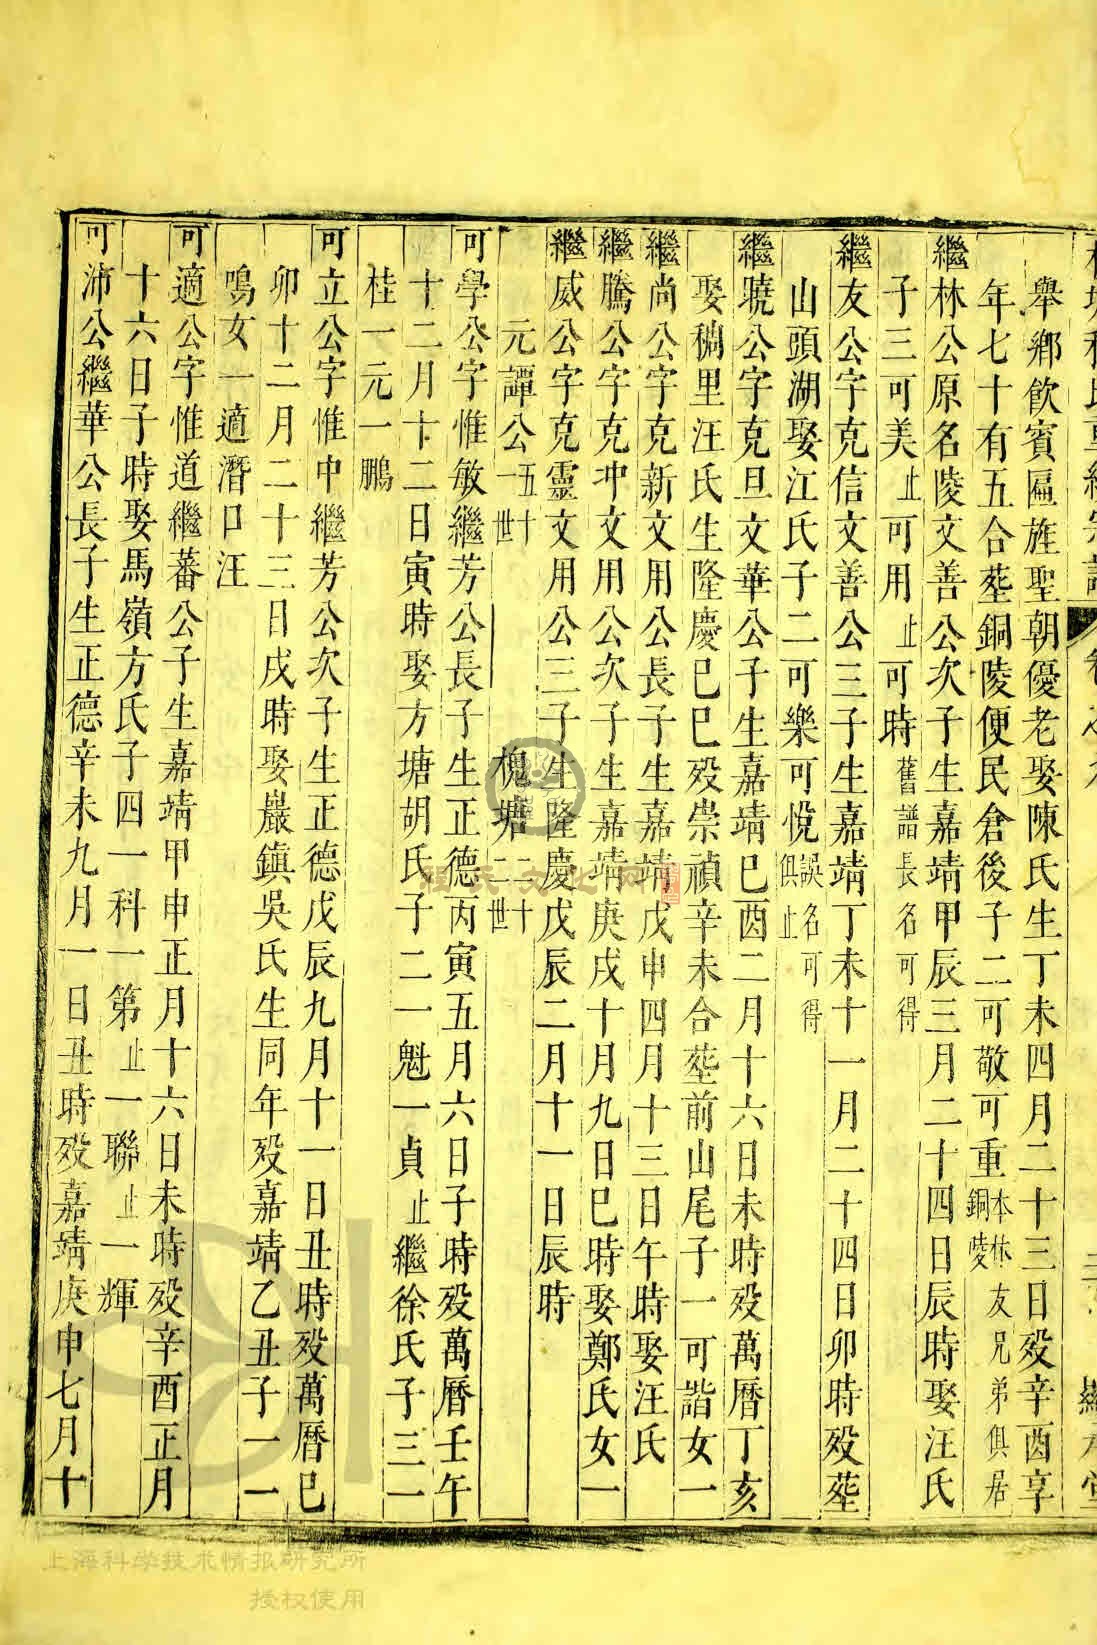 舉鄉飲賓匾旌聖朝優老娶陳氏生丁未四月二十三日歿辛酉享
年七十有五合塟銅陵便民倉後子二可敬可重本休友兄弟俱居銅陵
繼林公原名陵文善公次子生嘉靖甲辰三月二十四日辰時娶汪氏
子三可美止可用止可時舊譜長名可得
繼友公字克信文善公三子生嘉靖丁未十一月二十四日卯時歿塟
山頭湖娶江氏子二可樂可悅誤名可得俱止
繼曉公字克旦文華公子生嘉靖巳酉二月十六日未時歿萬曆丁亥
娶稠里汪氏生隆慶巳巳歿崇禎辛未合塟前山尾子一可諧女一
繼尚公字克新文用公長子生嘉靖戊申四月十三日午時娶汪氏
繼騰公字克冲文用公次子生嘉靖庚戌十月九日巳時娶鄭氏女一
繼威公字克靈文用公三子生隆慶戊辰二月十一日辰時
元譚公五十一世 槐塘二十二世
可學公字惟敏繼芳公長子生正德丙寅五月六日子時歿萬曆壬午
十二月十二日寅時娶方塘胡氏子二一魁一貞止繼徐氏子三一
桂一元一鵬
可立公字惟中繼芳公次子生正德戊辰九月十一日丑時歿萬曆巳
卯十二月二十三日戌時娶巖鎮吳氏生同年歿嘉靖乙丑子一一
鳴女一適潛口汪
可適公字惟道繼蕃公子生嘉靖甲申正月十六日未時歿辛酉正月
十六日子時娶馬嶺方氏子四一科一第止一聯止一輝
可沛公繼華公長子生正德辛未九月一日丑時歿嘉靖庚申七月十
上海科学技术情报研究所
授权使用